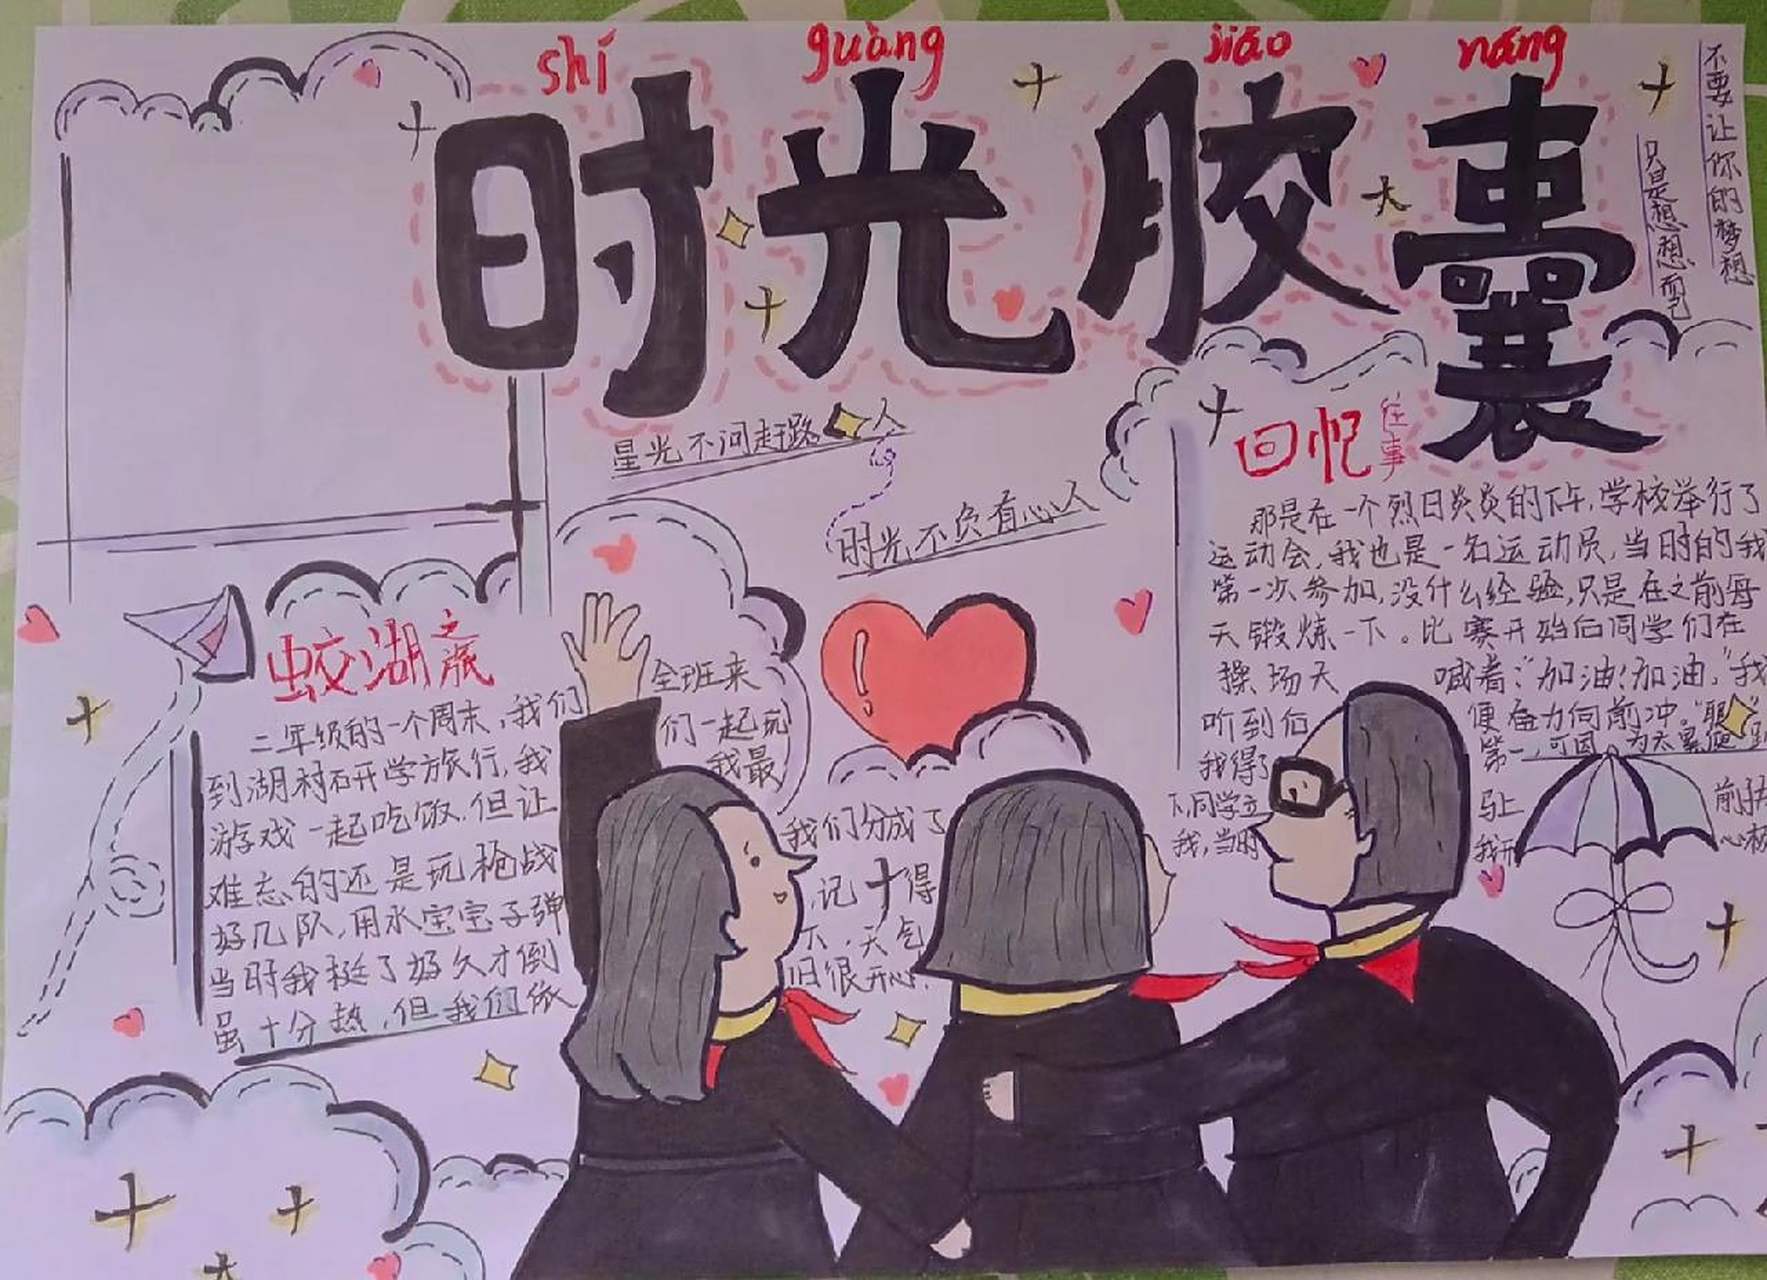 shí guàng jiāo náng
时光胶囊
不要让你的梦想
只是想想而已
星光不问赶路人
时光不负有心人
蛟湖之旅
二年级的一个周末,我们全班来
到湖村研学旅行,我们一起玩
游戏一起吃饭.但让我最
难忘的还是玩枪战,我们分成了
好几队,用水宝宝子弹,记得
当时我挺了好久才倒下,天气
虽十分热,但我们依旧很开心!
回忆往事
那是在一个烈日炎炎的下午,学校举行了
运动会,我也是一名运动员,当时的我
第一次参加,没什么经验,只是在之前每
天锻炼一下。比赛开始后同学们在
操场大喊着:“加油!加油,”我
听到后便奋力向前冲。
我得了第一,可因为太累便
下,同学立马上前扶
我,当时我